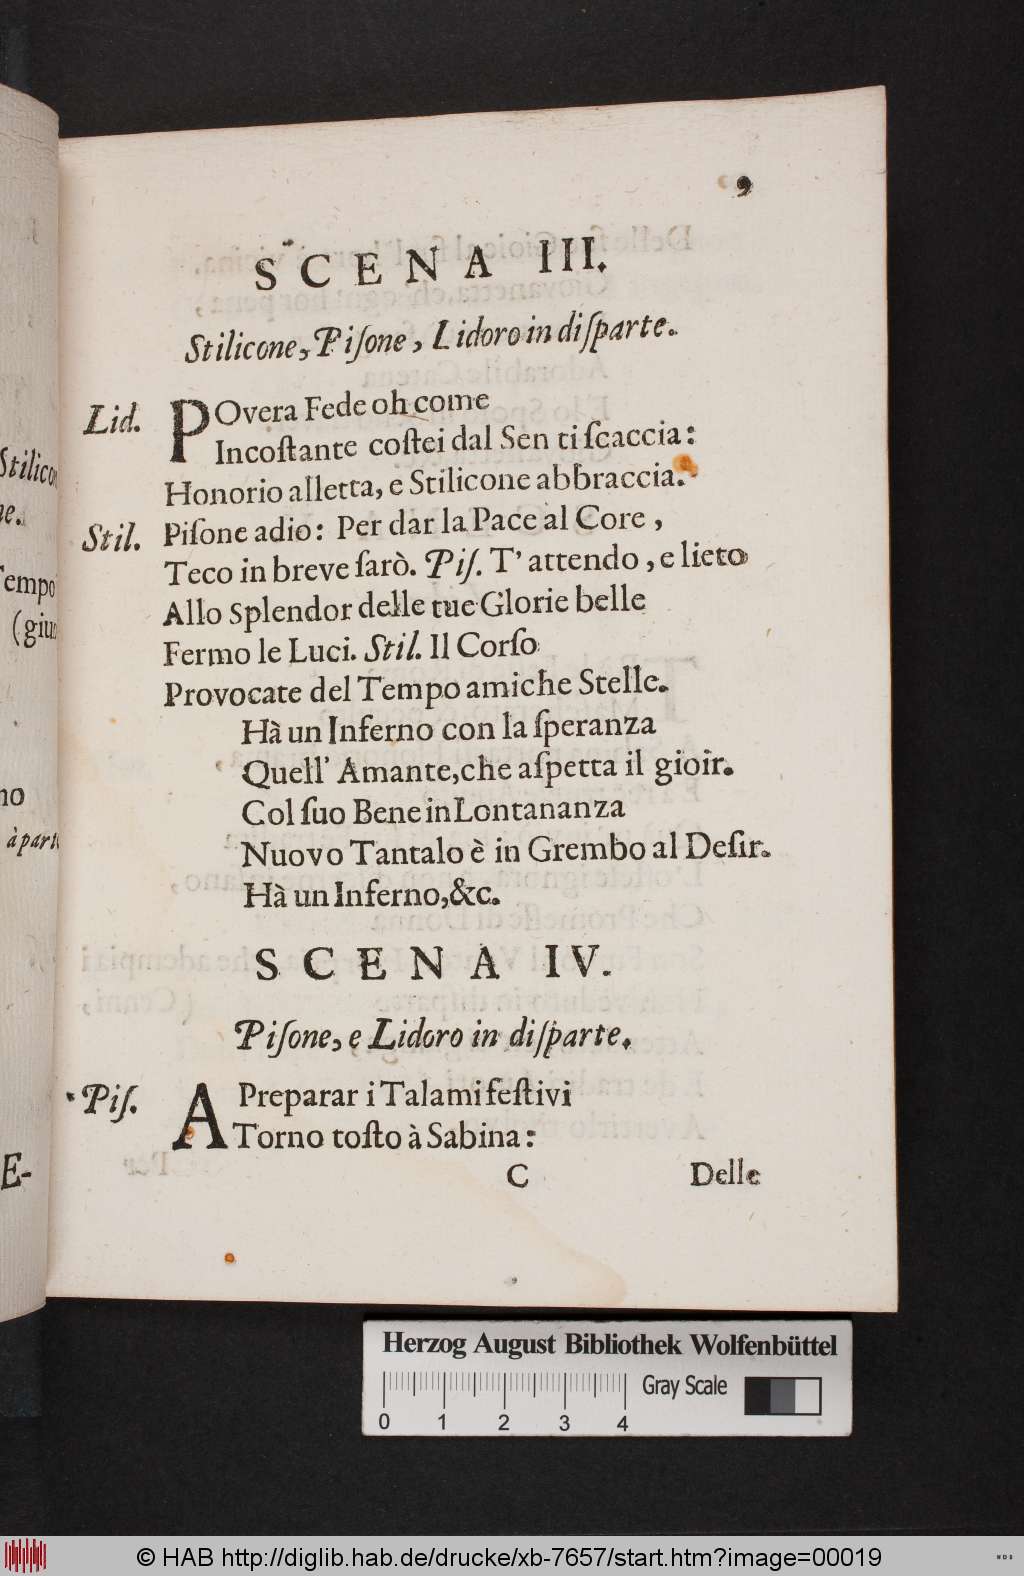 9
SCENA III.
Stilicone, Piſone, Lidoro in diſparte.
Lid. POvera Fede oh come
Incoſtante coſtei dal Sen ti ſcaccia:
Honorio alletta, e Stilicone abbraccia.
Stil. Piſone adio: Per dar la Pace al Core,
Teco in breve ſarò. Piſ. T' attendo, e lieto
Allo Splendor delle tue Glorie belle
Fermo le Luci. Stil. Il Corſo
Provocate del Tempo amiche Stelle.
Hà un Inferno con la ſperanza
Quell' Amante, che aſpetta il gioir.
Col ſuo Bene in Lontananza
Nuovo Tantalo è in Grembo al Deſir.
Hà un Inferno, &c.
SCENA IV.
Piſone, e Lidoro in diſparte.
Piſ. A Preparar i Talami feſtivi
Torno toſto à Sabina:
C Delle
Herzog August Bibliothek Wolfenbüttel
0 1 2 3 4 Gray Scale
© HAB http://diglib.hab.de/drucke/xb-7657/start.htm?image=00019